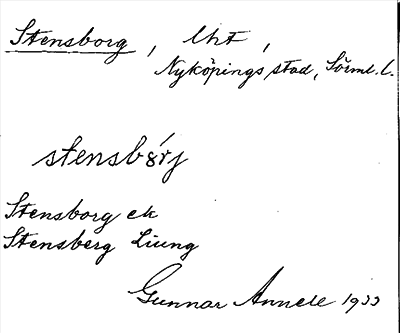 Stensborg, lht,
Nyköpings stad, Sörml. l.
stensbórj
Stensborg ek
Stensberg Liung
Gunnar Annell 1933